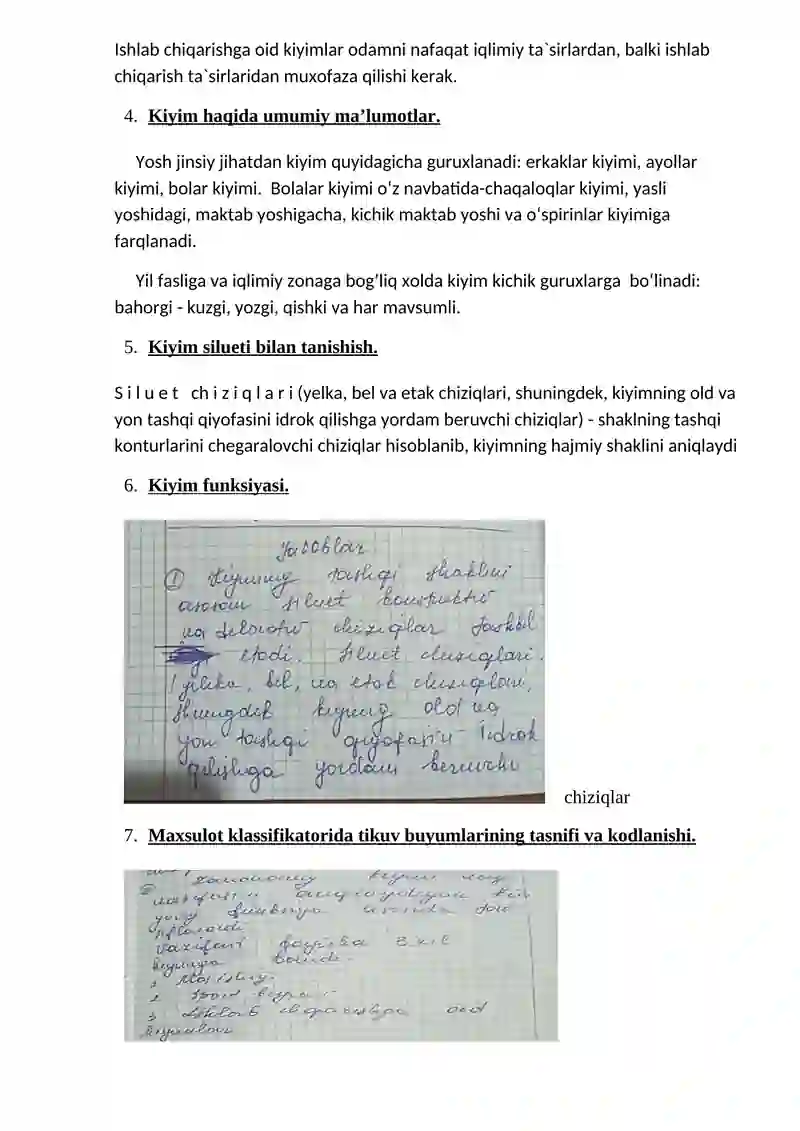 Ishlab chiqarishga oid kiyimlar odamni nafaqat iqlimiy ta`sirlardan, balki ishlab
chiqarish ta`sirlaridan muxofaza qilishi kerak.
4. Kiyim haqida umumiy ma’lumotlar.
Yosh jinsiy jihatdan kiyim quyidagicha guruxlanadi: erkaklar kiyimi, ayollar
kiyimi, bolar kiyimi. Bolalar kiyimi o‘z navbatida-chaqaloqlar kiyimi, yasli
yoshidagi, maktab yoshigacha, kichik maktab yoshi va o‘spirinlar kiyimiga
farqlanadi.
Yil fasliga va iqlimiy zonaga bog‘liq xolda kiyim kichik guruxlarga bo‘linadi:
bahorgi - kuzgi, yozgi, qishki va har mavsumli.
5. Kiyim silueti bilan tanishish.
S i l u e t ch i z i q l a r i (yelka, bel va etak chiziqlari, shuningdek, kiyimning old va
yon tashqi qiyofasini idrok qilishga yordam beruvchi chiziqlar) - shaklning tashqi
konturlarini chegaralovchi chiziqlar hisoblanib, kiyimning hajmiy shaklini aniqlaydi
6. Kiyim funksiyasi.
Javoblar
① Kiyimning tashqi shaklini
asosan siluet konstruktiv
va dekorativ chiziqlar tashkil
etadi. Siluet chiziqlari.
yelka, bel, va etak chiziqlari,
shuningdek kiyimng old va
yon tashqi qiyofasini idrok
qilishga yordam beruvchi
chiziqlar
7. Maxsulot klassifikatorida tikuv buyumlarining tasnifi va kodlanishi.
Zamonaviy kiyim
funksiya asosida
vazifasi boyicha 3 xil
kiyimga
1
2
3 Ishlab chiqarishga oid
kiyimlar